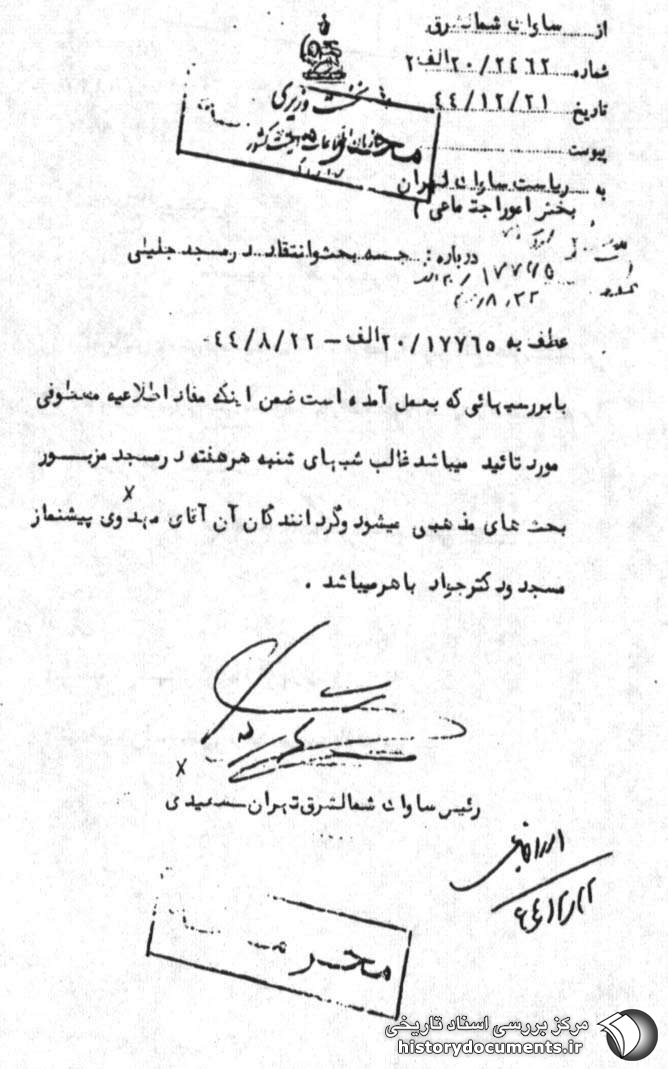 از ساواک شمالشرق
شماره ۲۰/۲۴۶۲الف۲
تاریخ ۴۴/۱۲/۲۱
پیوست
نخست وزیری
سازمان اطلاعات و امنیت کشور
محرمانه
به ریاست ساواک تهران
بخش امور اجتماعی)
درباره: جلسه بحث و انتقاد در مسجد جلیلی
۱۷۷۶۵
عطف به ۲۰/۱۷۷۶۵الف – ۴۴/۸/۲۲
با بررسیهائی که بعمل آمده است ضمن اینکه مفاد اطلاعیه معطوفی
مورد تائید میباشد غالب شبهای شنبه هر هفته در مسجد مزبور
بحث های مذهبی میشود و گردانندگان آن آقای مهدوی پیشنماز
مسجد و دکتر جواد باهر میباشد .
رئیس ساواک شمالشرق تهران سعیدی
محرمانه
مرکز بررسی اسناد تاریخی
historydocuments.ir